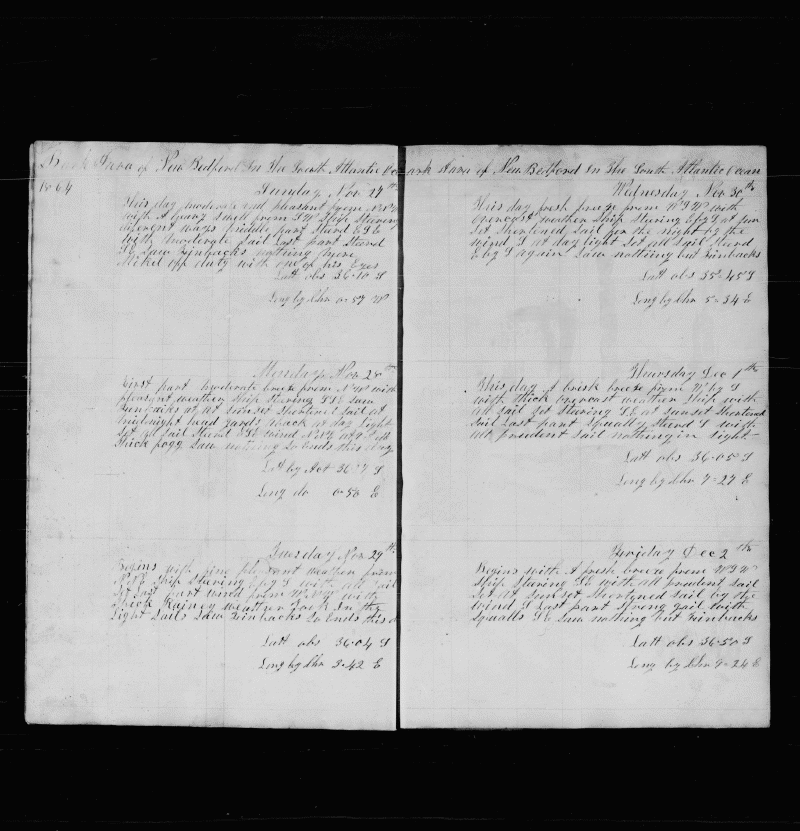 Bark Java of New Bedford In The South Atlantic Oc
1864
Sunday Nov 27th
This day moderate and pleasant from NNW
with A quartz smell from SW Ship Steering
different ways middle part Steerd ESE
with moderate sail Last part Steerd
SE Saw Finbacks nothing more
off duty with one of his Eyes
Latt obs 36-10 S
Long by Chr 0-57 W
Monday Nov 28th
First part moderate breeze from NW with
pleasant weather Ship Steering SSE Saw
Finbacks at at sunset Shortened Sail at
midnight head yards aback at day light
Set all sail Steerd SE wind NNE
thick fogg Saw nothing So Ends this day
Lat by Act 36 S
Long do 0-50 E
Tuesday Nov 29th
Begins with fine pleasant weather from
Ship Steering E by S with all sail
set Last part wind from with
thick Rainey weather Took In the
Light Sails Saw Finbacks So Ends this d
Latt obs 36-04 S
Long by Chr 3-42 E
ark Java of New Bedford In The South Atlantic Ocean
Wednesday Nov 30th
This day fresh breeze from WSW with
overcast weather Ship Steering E by S at sun
set Shortened Sail for the night by the
wind S at day light Set all Sail Steerd
E by S again Saw nothing but Finbacks
Latt obs 35-45 S
Long by Chr 5-34 E
Thursday Dec 1th
This day A brisk breeze from W by S
with thick overcast weather Ship with
all sail set Steering SE at sunset Shortened
Sail Last part Squally Steerd S with
all prudent Sail nothing in Sight
Latt obs 36-05 S
Long by Chr 7-27 E
Friday Dec 2th
Begins with A fresh breeze from WSW
Ship Steering SE with all prudent sail
set At sun set Shortened sail by the
wind S Last part Strong gail with
Squalls SE Saw nothing but Finbacks
Latt obs 36-50 S
Long by Chr 9-24 E